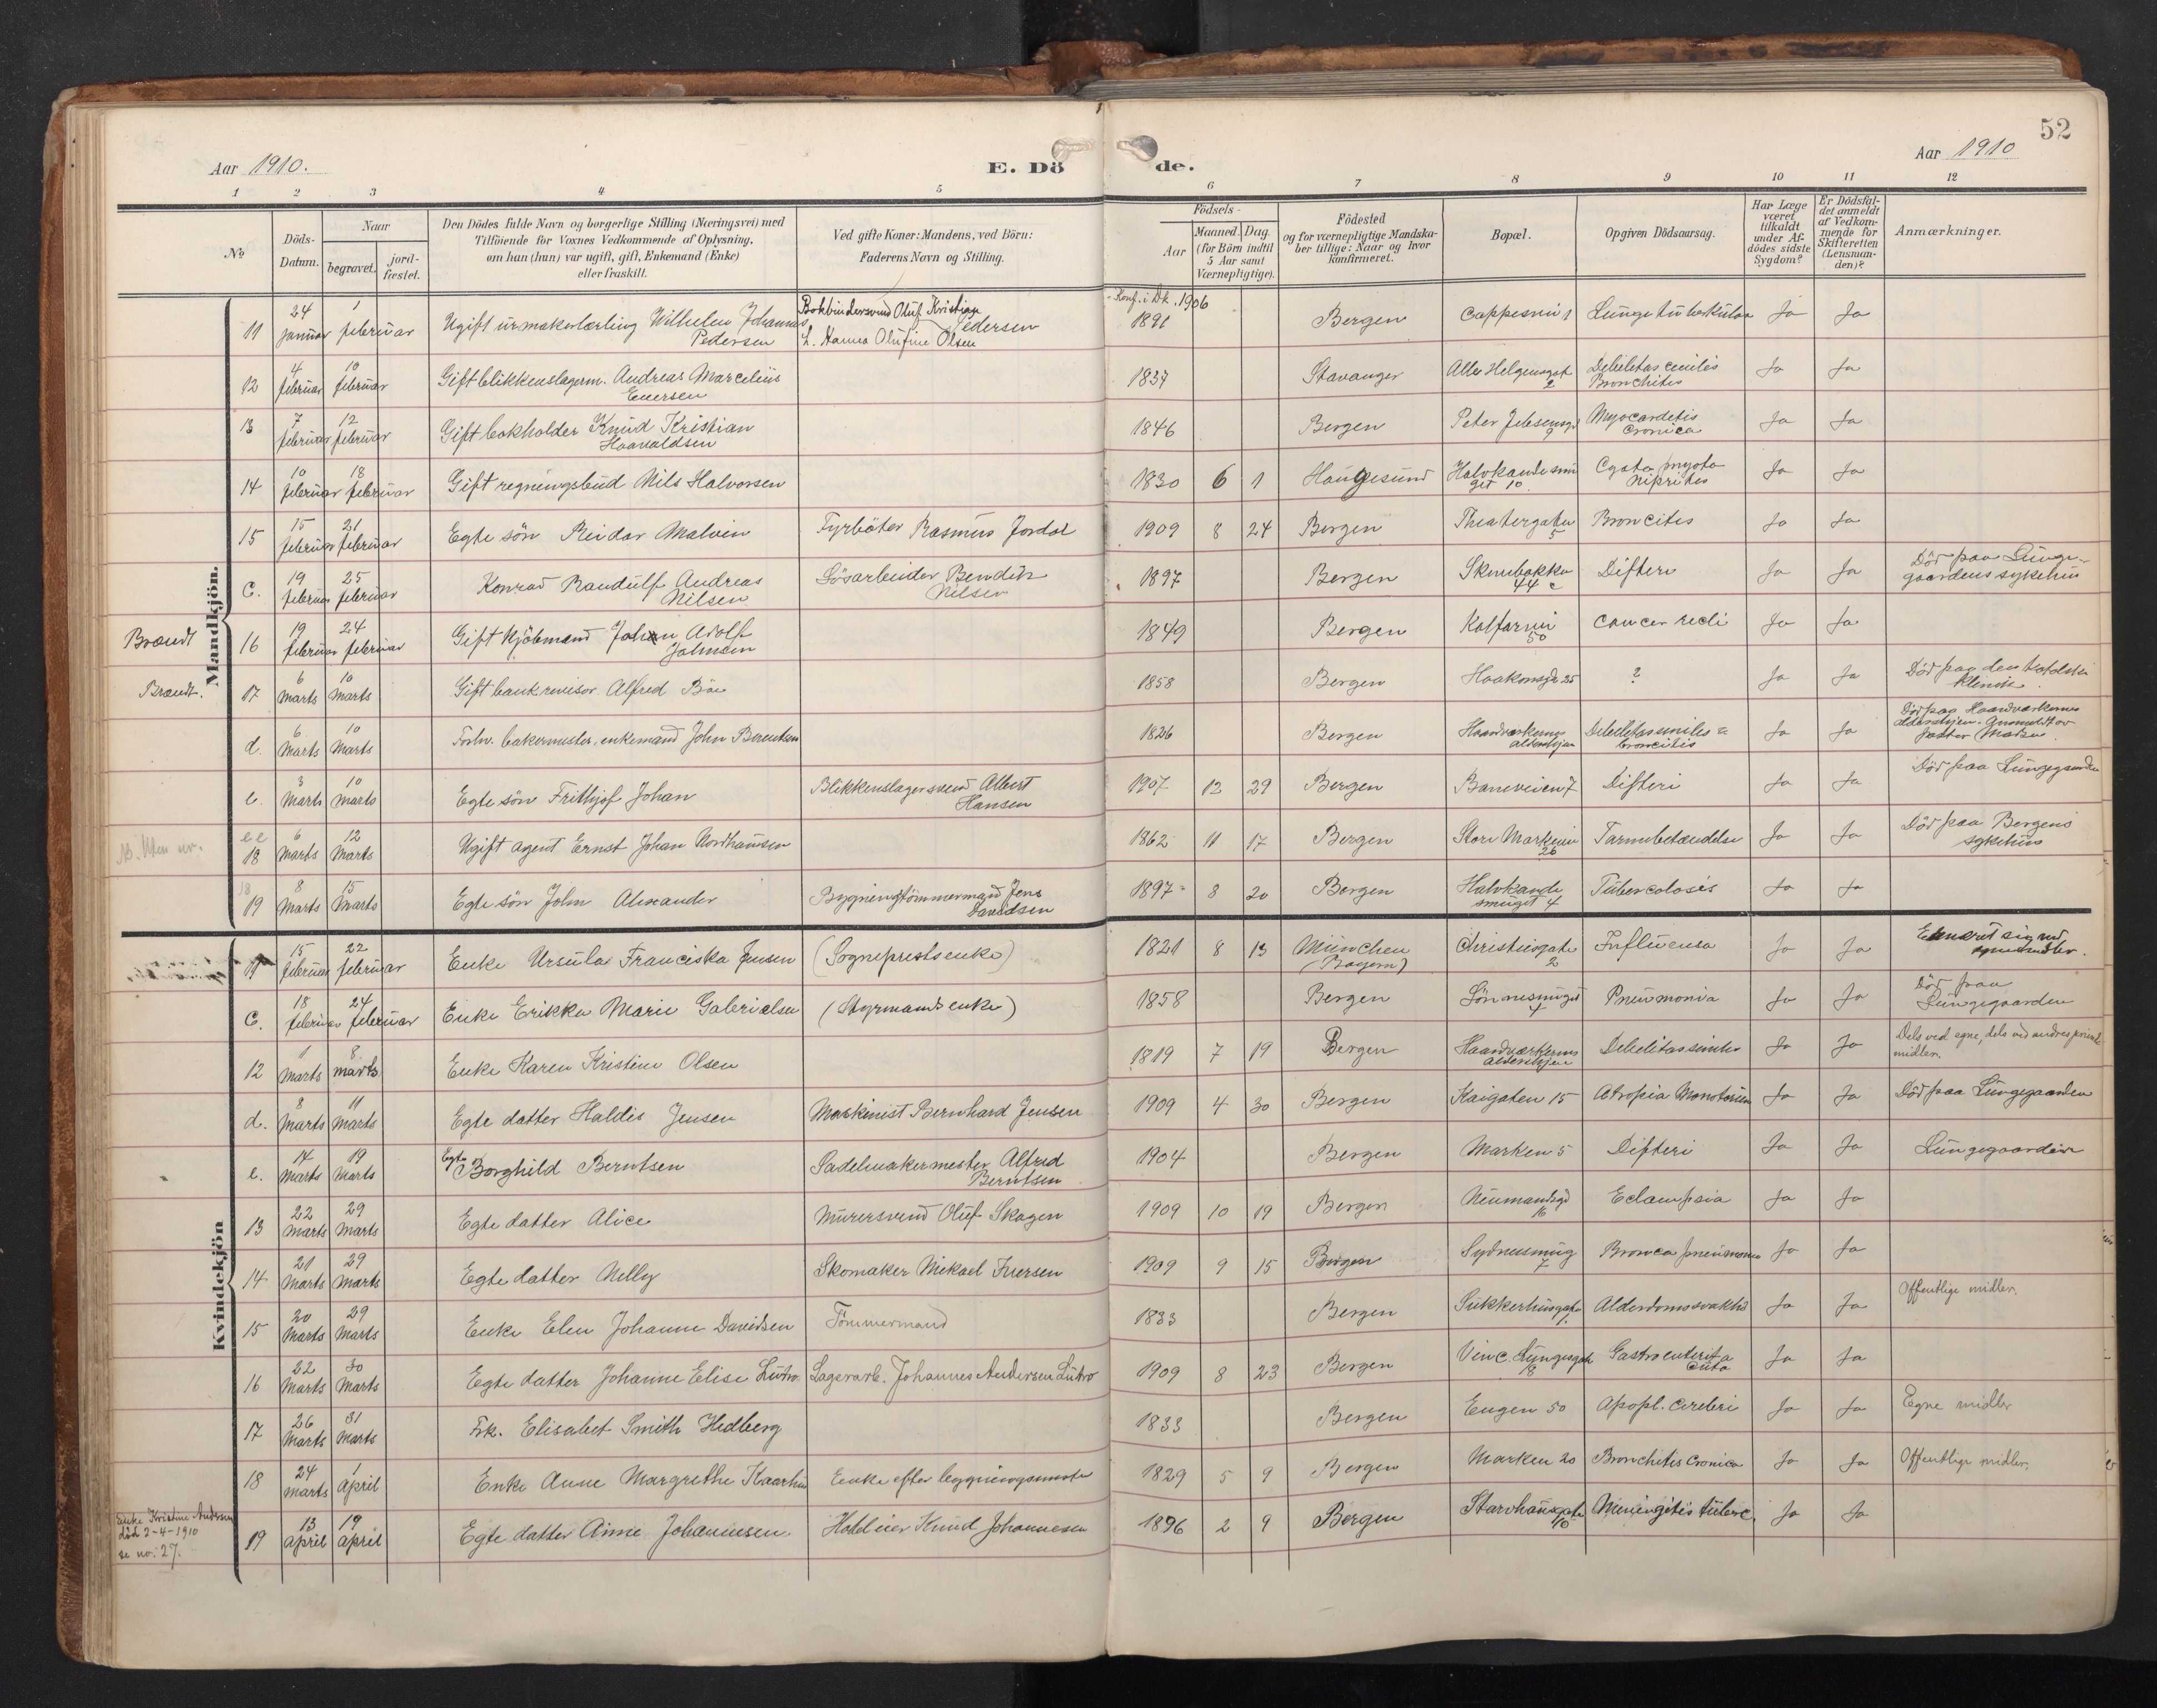 52
Aar 1910.
E. Dö
de.
Aar 1910
1 2 3 4 5 6 7 8 9 10 11 12
No
Döds-Datum.
Naar
begravet.
jord-fæstet.
Den Dödes fulde Navn og borgerlige Stilling (Næringsvei) med
Tilföiende for Voxnes Vedkommende af Oplysning,
om han (hun) var ugift, gift, Enkemand (Enke)
eller fraskilt.
Ved gifte Koner: Mandens, ved Börn:
Faderens Navn og Stilling.
Födsels-
Aar
Maaned. Dag.
(for Börn indtil
5 Aar samt
Værnepligtige).
Födested
og for værnepligtige Mandska-
ber tillige: Naar og hvor
konfirmeret.
Bopæl.
Opgiven Dödsaarsag.
Har Læge
været
tilkaldt
under Af-
dödes sidste
Sygdom?
Er Dödsfal-
det anmeldt
af Vedkom-
mende for
Skifteretten
(Lensman-
den)?
Anmærkninger.
Mandkjön.
11 24 januar 1 februar Ugift urmakerlærling Wilhelm Johannes Pedersen Bokbindersvend Oluf Kristian Pedersen L. Hanna Olufine Olsen Konf. i Dk. 1906 1891 Bergen Cappesmü 1 Lungetuberkulose Ja Ja
12 4 februar 10 februar Gift blikkenslagerm. Andreas Marcelius Enersen 1837 Stavanger Alle Helgensgt 2 Debilitas cenilis Bronchitis Ja Ja
13 7 februar 12 februar Gift bokholder Knud Kristian Haavaldsen 1846 Bergen Peter Jebsensgt 9 Myocarditis Cronica Ja Ja
14 10 februar 18 februar Gift regningsbud Nils Halvorsen 1830 6 1 Haugesund Halvkandesmuget 10 Niprites Ja Ja
15 15 februar 21 februar Egte sön Reidar Malvin Fyrböter Rasmus Jordal 1909 8 24 Bergen Theatergaten 5 Broncites Ja Ja
c. 19 februar 25 februar Konrad Randulf Andreas Nilsen Lösarbeider Bendik Nilsen 1897 Bergen 44 c Difteri Ja Ja Död paa Lungegaardens sykehus
Brandt 16 19 februar 24 februar Gift kjöbmand Johan Adolf Johnsen 1849 Bergen Kalfarvei 50 Cancer recti Ja Ja
Brandt. 17 6 Marts 10 Marts Gift bankrevisor Alfred Böe 1858 Bergen Haakonsgt 25 ? Ja Ja Död paa den katolske klinik.
d. 6 Marts 10 Marts Forhv. bakermester, enkemand John Berentsen 1826 Bergen Haandverkernes aldershjem Debilitas seniles & broncitis Ja Ja Död paa Haandværkernes aldershjem. Anmeldt av datter
e. 3 Marts 10 Marts Egte sön Frithjof Johan Blikkenslagersvend Albert Hansen 1907 12 29 Bergen Baneveien 7 Difteri Ja Ja Död paa Lungegaarden
ee 18 6 Marts 12 Marts Ugift agent Ernst Johan Nordhausen 1862 11 17 Bergen Store Markevei 26 Tarmbetændelse Ja Ja Död paa Bergens sykehus
18 19 8 Marts 15 Marts Egte sön John Alexander Bygningstömmermand Jens Davidsen 1897 8 20 Bergen Halvkande smuget 4 Tubercolosis Ja Ja
Kvindekjön
11 15 februar 22 februar Enke Ursula Franciska Jensen (Sogneprestsenke) 1821 8 13 München (Bayern) Christiesgate 2 Influensa Ja Ja
c. 18 februar 24 februar Enke Erikke Marie Gabrielsen (Styrmandsenke) 1858 Bergen Lönnesmuget 4 Pneumonia Ja Ja Död paa Lungegaarden
12 1 Marts 8 marts Enke Karen Kristine Olsen 1819 7 19 Bergen Haandværkernes aldershjem Debilitas senilis Ja Ja Dels ved egne, dels ved andres private midler.
d. 8 Marts 11 Marts Egte datter Haldis Jensen Maskinist Bernhard Jensen 1909 4 30 Bergen Kaigaten 15 Atropia Ja Ja Död paa Lungegaarden
e. 14 Marts 19 Marts Egte Borghild Berntsen Sadelmakermester Alfred Berntsen 1904 Bergen Marken 5 Difteri Ja Ja Lungegaarden
13 22 Marts 29 Marts Egte datter Alice Murersvend Oluf Skagen 1909 10 19 Bergen Neumandsgt 16 Eclampsia Ja Ja
14 21 Marts 29 Marts Egte datter Nelly Skomaker Mikael Iversen 1909 9 15 Bergen Sydnessmug 7 Bronca pneumoni Ja Ja
15 20 Marts 29 Marts Enke Elen Johanne Davidsen Tömmermand 1833 Bergen Sukkerhusgate Alderdomssvakhed Ja Ja Offentlige midler.
16 22 Marts 30 Marts Egte datter Johanne Elise Lutro Lagerarb. Johannes Andersen Lutro 1909 8 23 Bergen Vinc. Lungesgate 8 Gastroenterit acuta Ja Ja
17 26 Marts 31 Marts Frk. Elisabet Smith Hedberg 1833 Bergen Engen 50 Apopl. cerebri Ja Ja Egne midler
18 24 marts 1 April Enke Anne Margrethe Kaarhus Enke efter bygningsmester 1829 5 9 Bergen Marken 20 Bronchitis Cronica Ja Ja Offentlige midler.
Enke Kristine Andersen död 2-4-1910 se no: 27.
19 13 April 19 April Egte datter Aime Johannesen Hoteleier Knud Johannesen 1896 2 9 Bergen Starvhusgate 10 Meningitis tuberc. Ja Ja